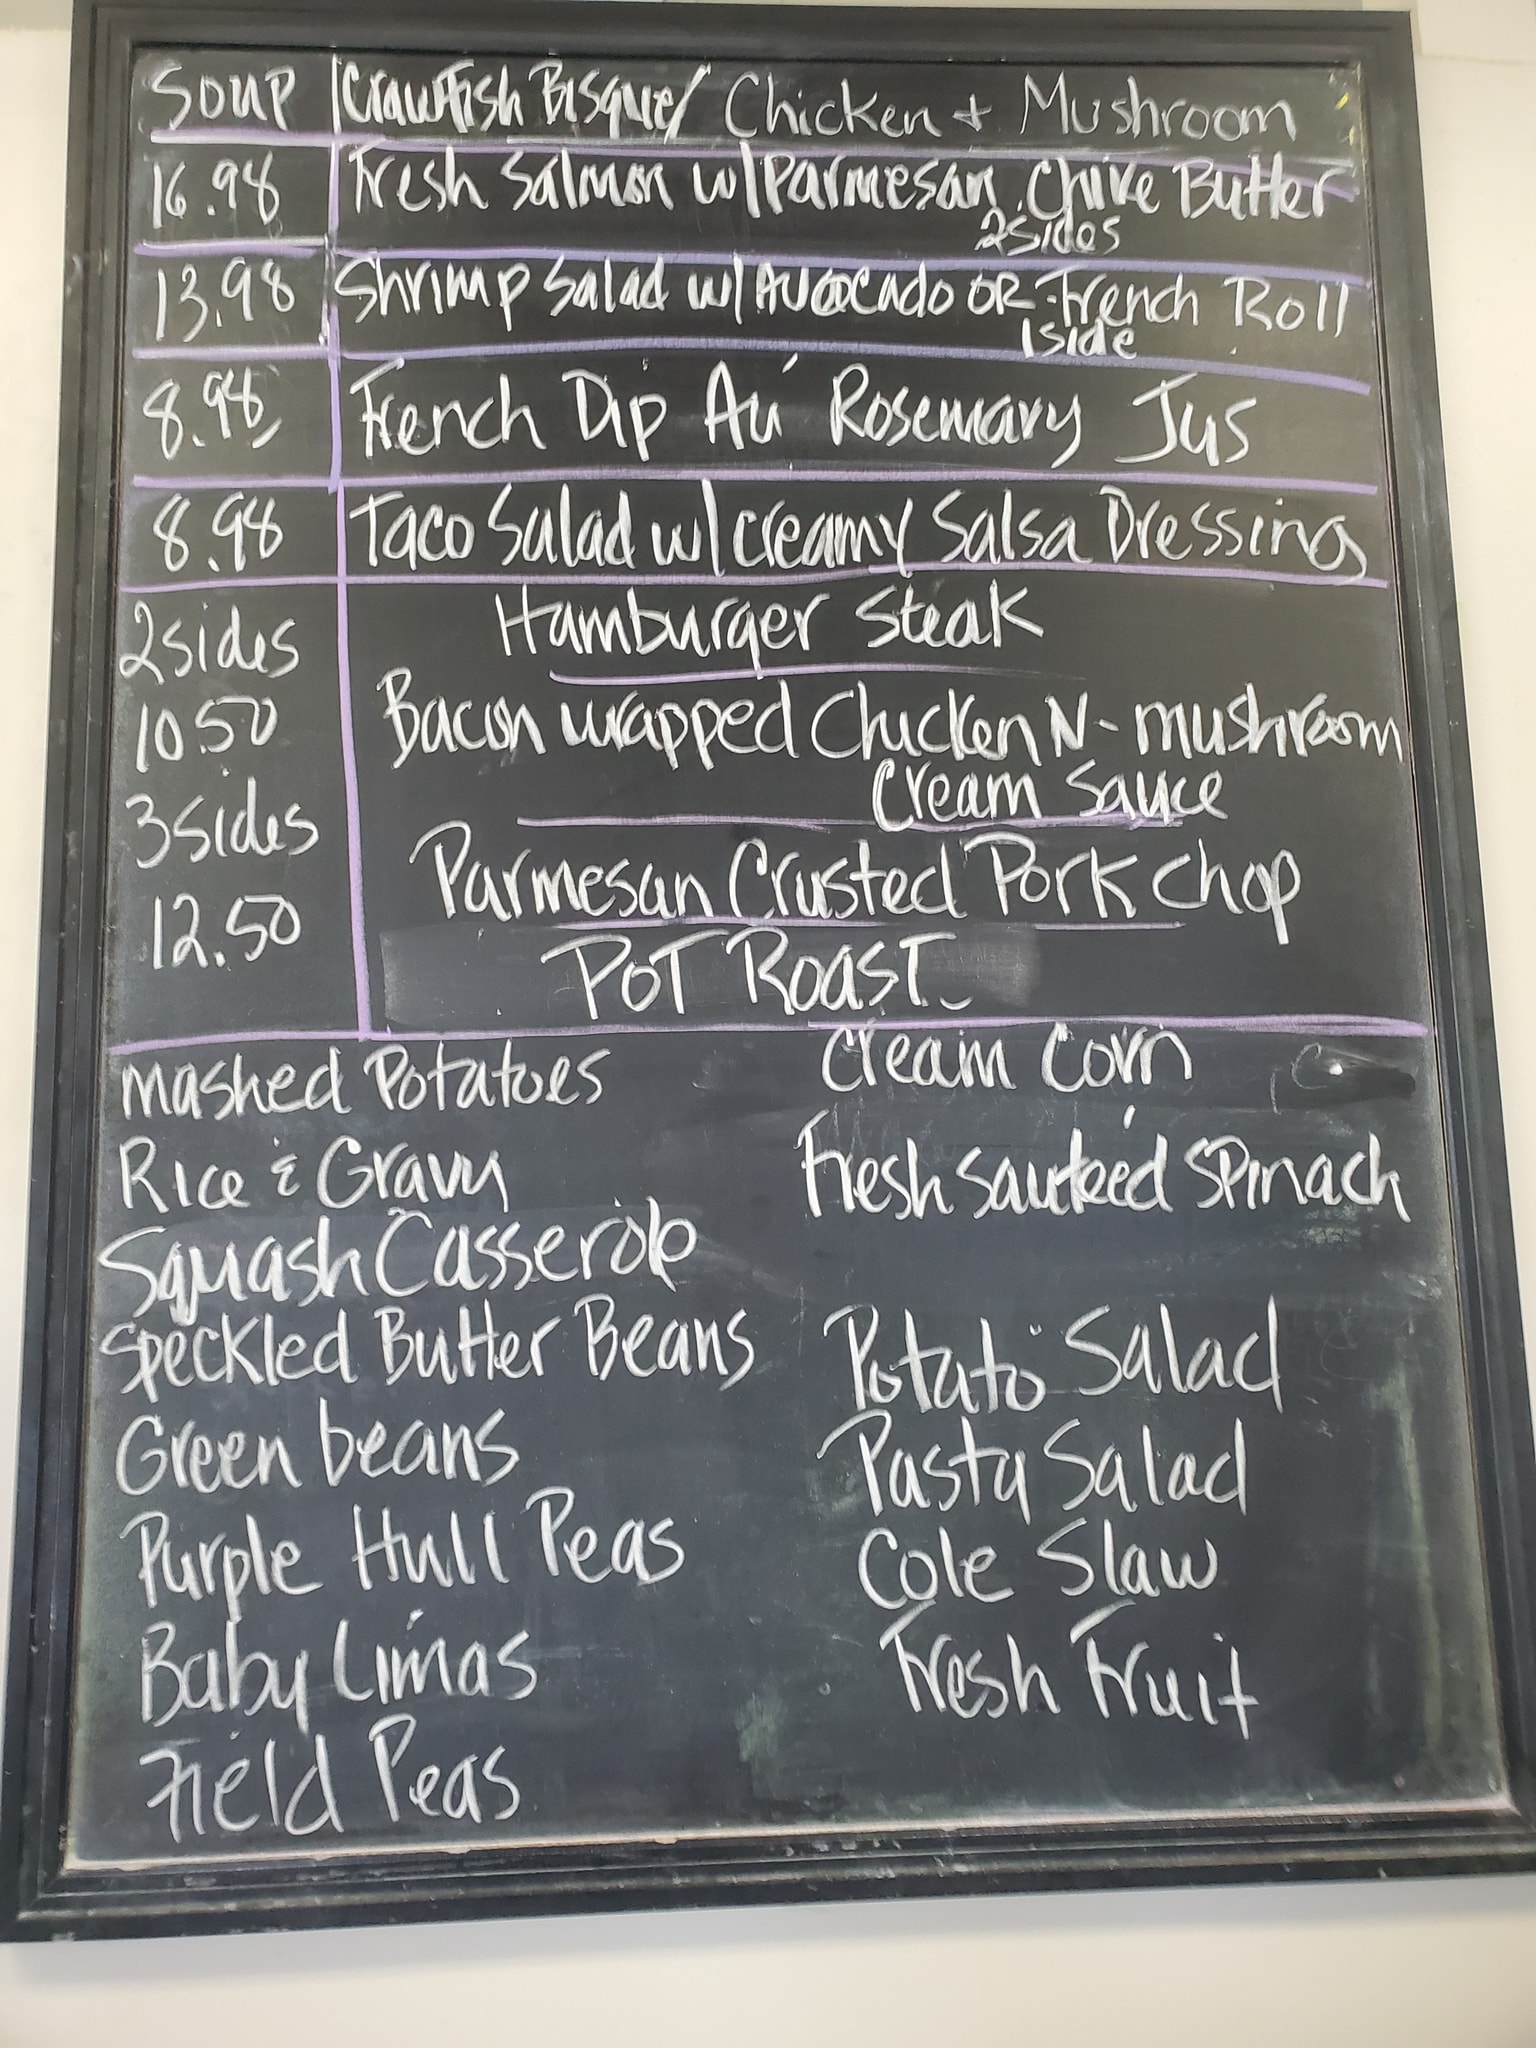 Soup Crawfish Bisque/ Chicken + Mushroom
16.98 Fresh Salmon w/Parmesan Chive Butter
2sides
13.98 Shrimp Salad w/Avocado OR French Roll
1side
8.98 French Dip Aú Rosemary Jus
8.98 Taco Salad w/creamy Salsa Dressing
2sides Hamburger Steak
10.50 Bacon wrapped Chicken N- mushroom
Cream Sauce
3sides Parmesan Crusted Pork Chop
12.50 POT ROAST
Mashed Potatoes
Rice & Gravy
Squash Casserole
Speckled Butter Beans
Green beans
Purple Hull Peas
Baby Limas
Field Peas
Cream Corn
Fresh Sauteéd Spinach
Potato Salad
Pasta Salad
Cole Slaw
Fresh Fruit